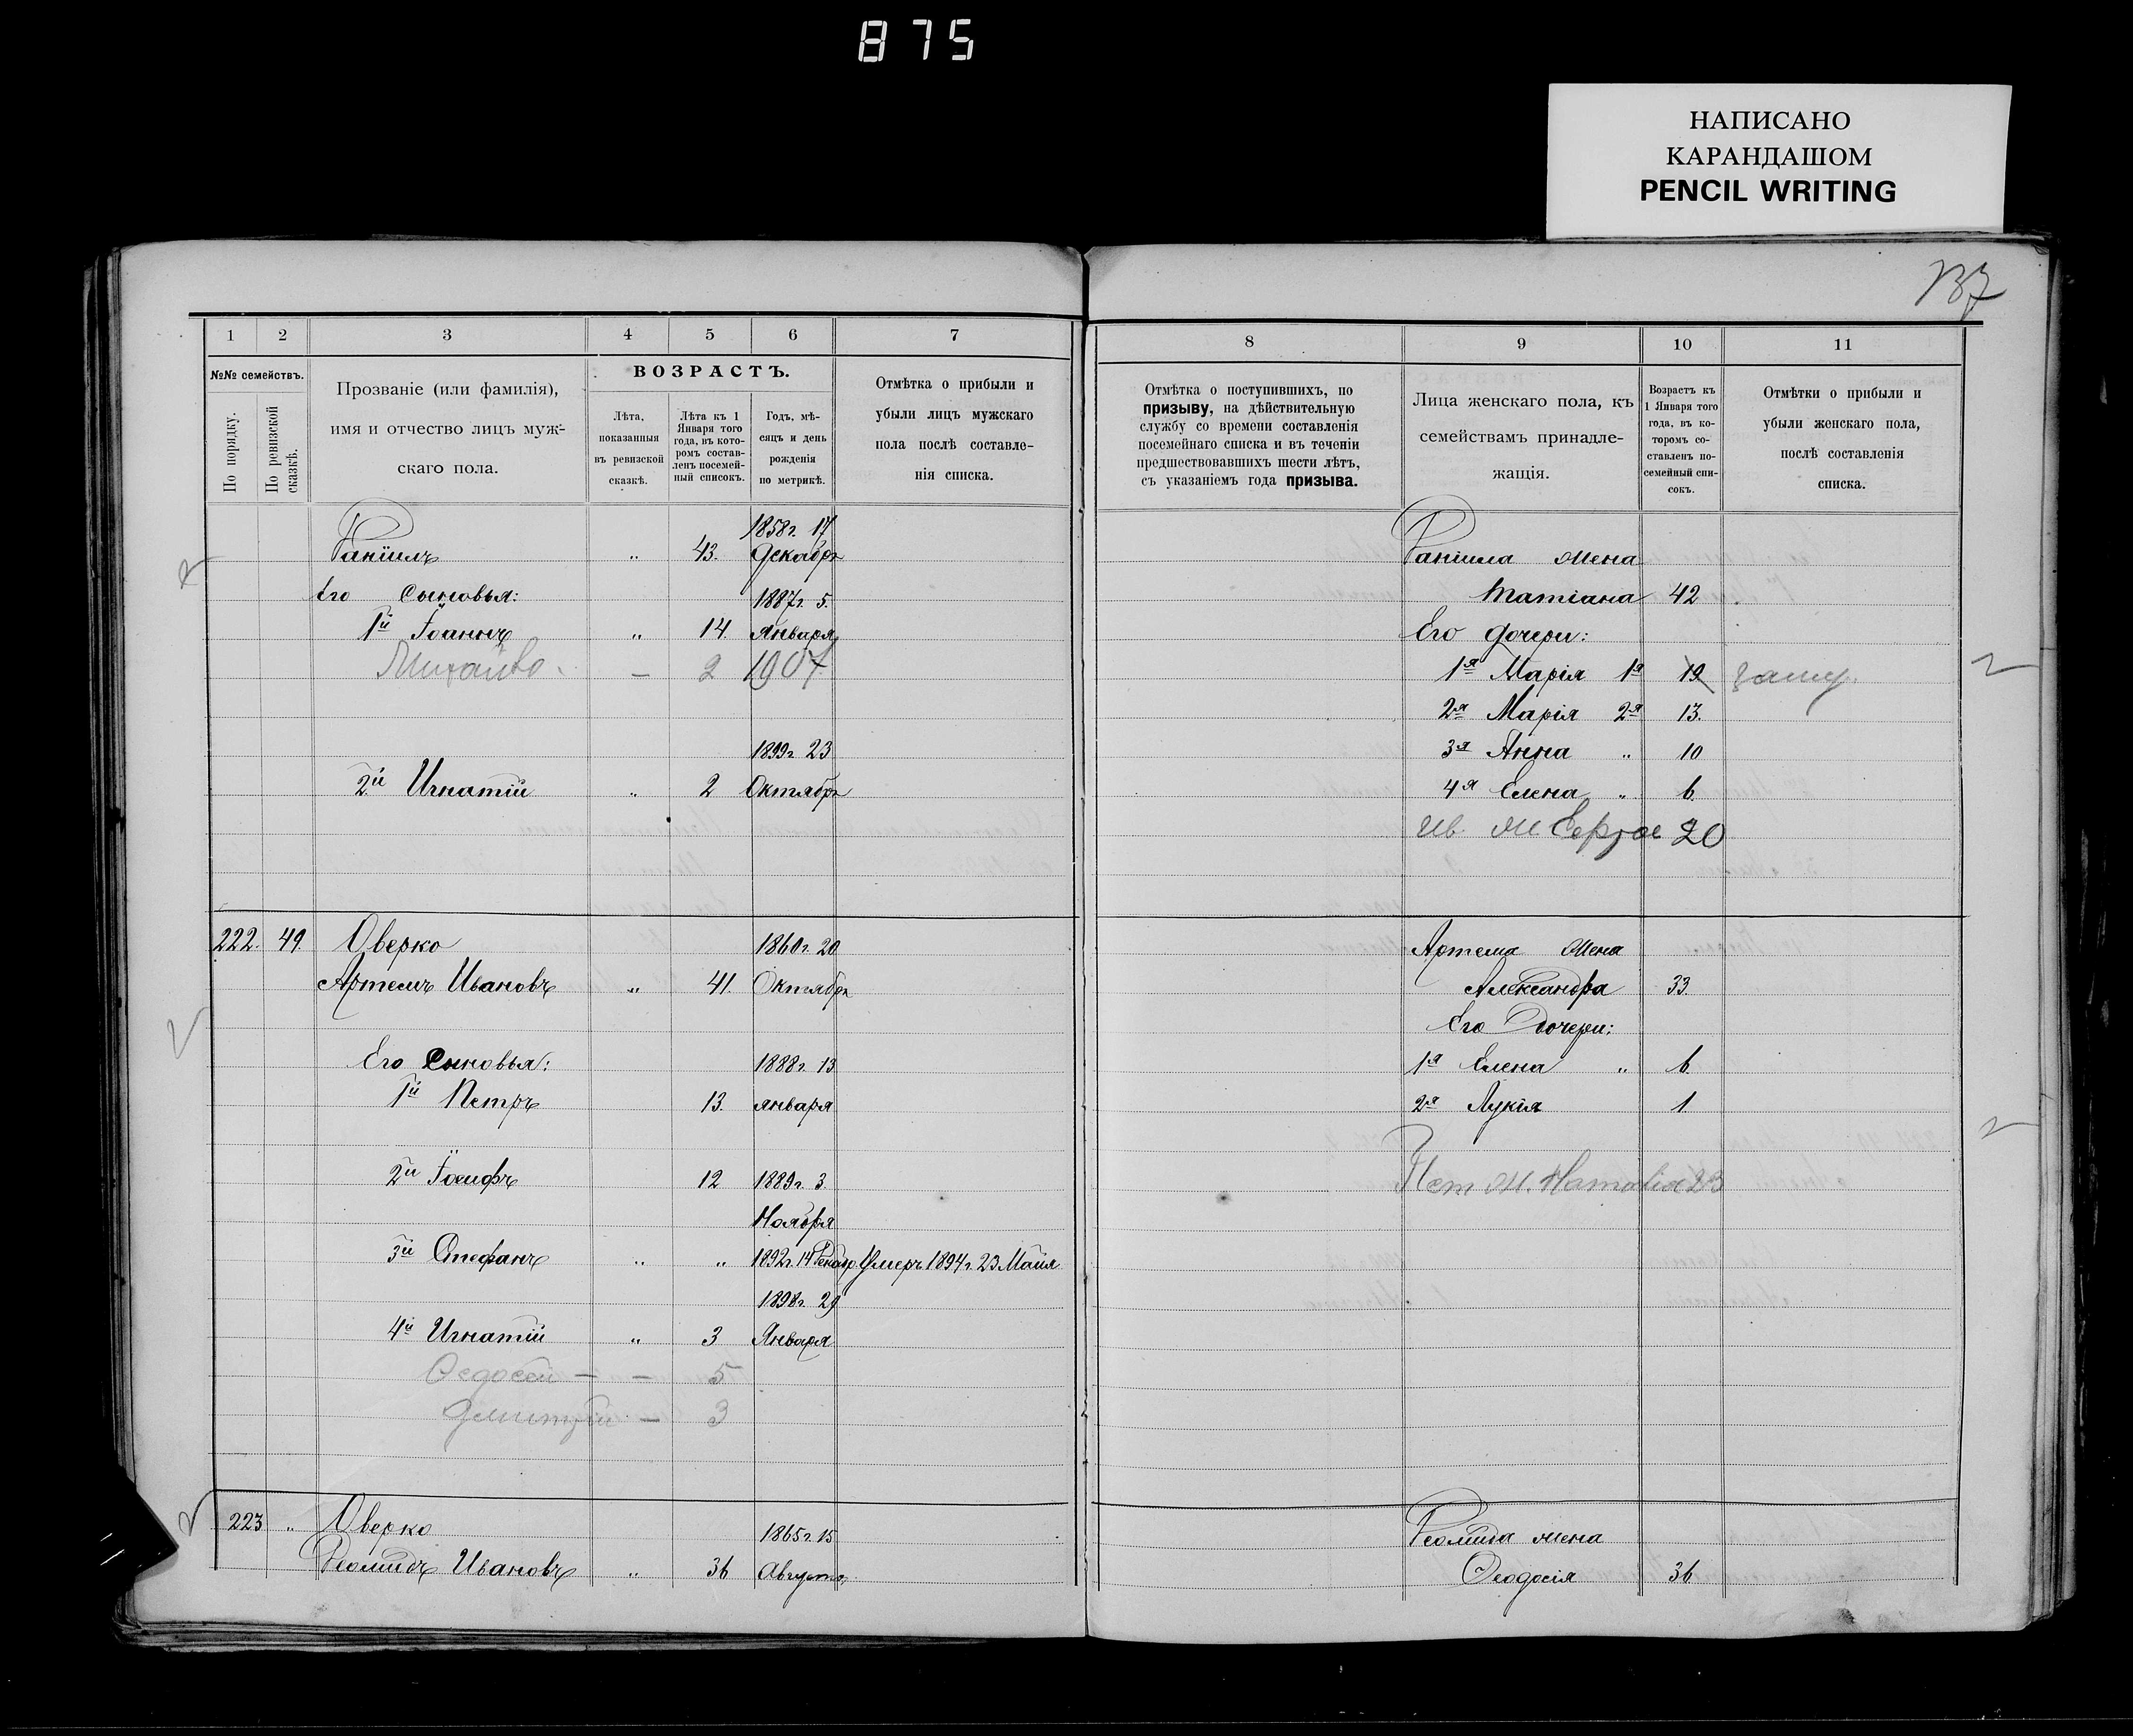 875
НАПИСАНО
КАРАНДАШОМ
PENCIL WRITING
137
1 2 3 4 5 6 7
№№ семействъ.
По порядку.
По ревизской сказкѣ.
Прозваніе (или фамилія),
имя и отчество лицъ муж-
скаго пола.
ВОЗРАСТЪ.
Лѣта,
показанныя
въ ревизской
сказкѣ.
Лѣта къ 1
Января того
года, въ кото-
ромъ состав-
ленъ посемей-
ный списокъ.
Годъ, мѣ-
сяцъ и день
рожденія
по метрикѣ.
Отмѣтка о прибыли и
убыли лицъ мужскаго
пола послѣ составле-
нія списка.
1858г. 17
Даніилъ „ 43. Декабря
Его Сыновья: 1887г. 5.
1й Іоаннъ „ 14. Января
Михайло — 2 1907
1899г. 23
2й Игнатій „ 2 Октября
222. 49. Оверко 1860г. 20
Артемъ Ивановъ „ 41. Октября
Его Сыновья: 1888г. 13
1й Петръ 13. января
2й Іосифъ 12 1889г. 3
Ноября
3й Стефанъ „ „ 1892г. 14 Декабр. Умеръ 1894г. 23 Майя
1898г. 29
4й Игнатій „ 3 Января
Федосей — — 5
Дмитрій — 3
223 „ Оверко 1865г. 15
Леонидъ Ивановъ „ 36 Августа
8 9 10 11
Отмѣтка о поступившихъ, по
призыву, на дѣйствительную
службу со времени составленія
посемейнаго списка и въ теченіи
предшествовавшихъ шести лѣтъ,
съ указаніемъ года призыва.
Лица женскаго пола, къ
семействамъ принадле-
жащія.
Возрастъ къ
1 Января того
года, въ ко-
торомъ со-
ставленъ по-
семейный спи-
сокъ.
Отмѣтки о прибыли и
убыли женскаго пола,
послѣ составленія
списка.
Даніила жена
Татіана 42
Его дочери:
1я Марія 1я 19 замуж.
2я Марія 2я 13.
3я Анна „ 10
4я Елена „ 6.
Ив. ж 20
Артема жена
Александра 33.
Его Дочери:
1я Елена „ 6.
2я Лукія 1
Пет ж. Наталія 23
Леонида жена
Феодосія 36